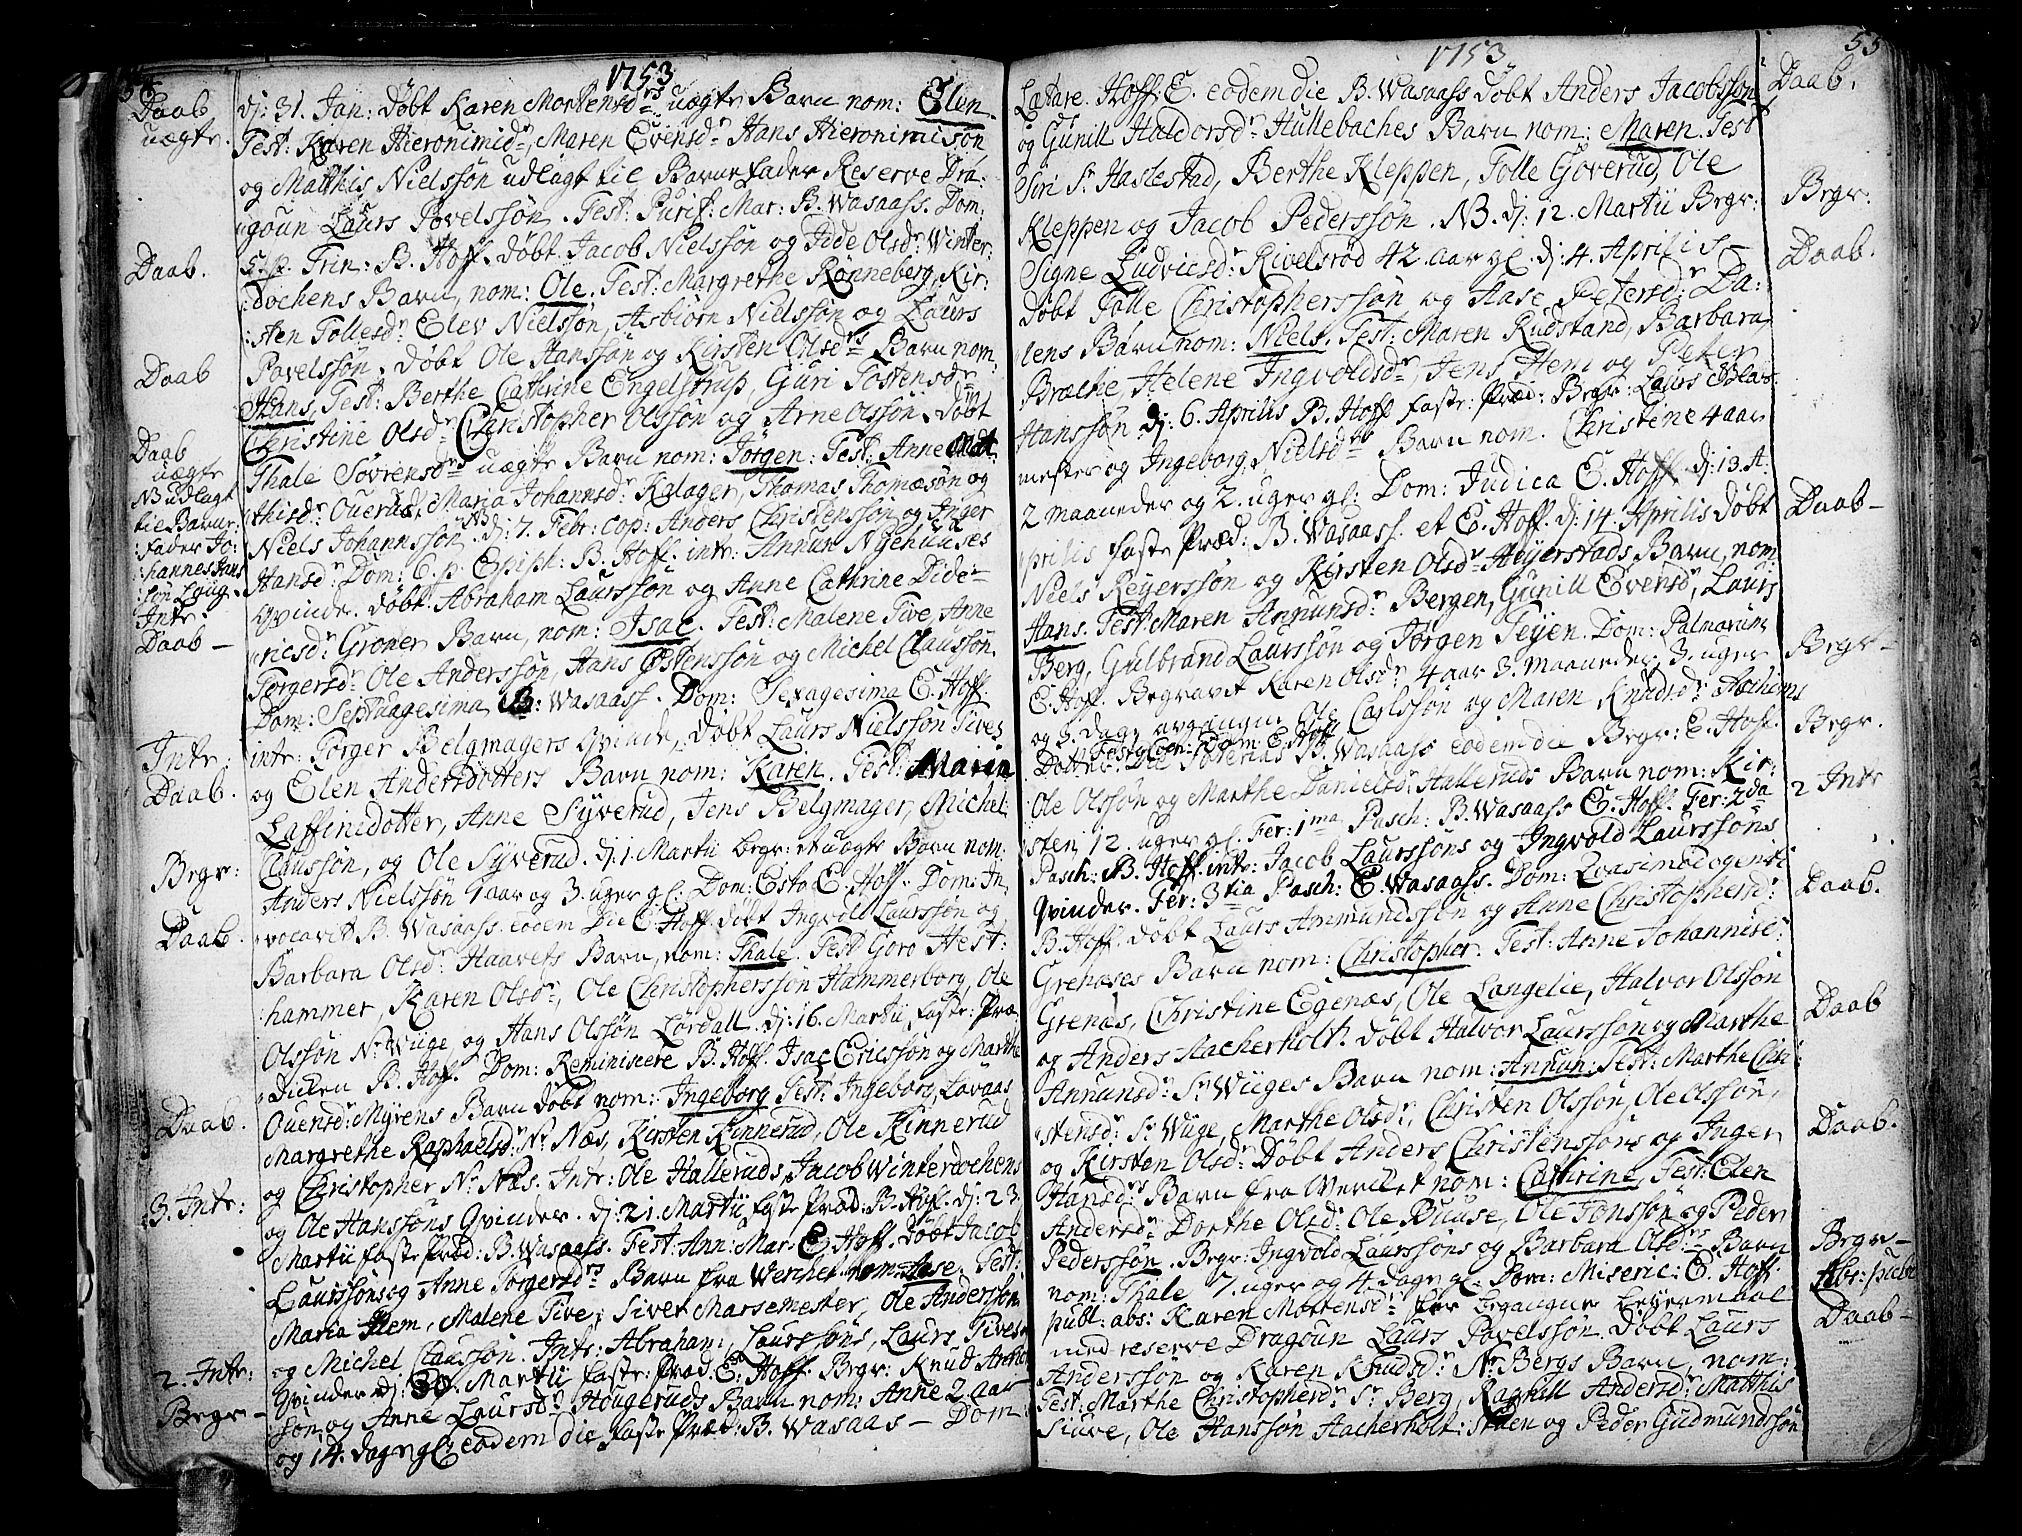 1753
Daab
uægte.
dj: 31. Jan: døbt Karen Mortensdrs uægte Barn nom: Elen.
Test: Karen Hieronimidr, Maren Evensdr Hans Hieronimisøn
og Matthis Nielssøn udlagt til Barnefader Reserve Dra-
goun Laurs Povelssøn. Fest: Purif: Mar: B. Wasaass. Dom:
Daab.
5. p. Trin: B. Hoff. døbt Jacob Nielssøn og Idde Olsdr Winter-
dochens Barn, nom: Ole. Test: Margrethe Rønneberg, Kir-
sten Tollesdr Elev Nielssøn, Asbiørn Nielssøn og Laurs
Daab
Povelssøn. Døbt Ole Hanssøn og Kirsten Olsdrs Barn nom:
Hans, Test: Berthe Cathrine Engelstrup, Guri Tostensdr
Christine Olsdr Christopher Olssøn og Arne Olssøn. Døbt
Daab
uægte
NB udlagt
til Barne-
fader Jo-
hannes Hans
søn
Thale Sovrensdrs uægte Barn nom: Jørgen: Test: Anne Mat
thisdr Ouerud, Maria Johannsdr Kalager, Thomas Thomæsøn og
Niels Johannssøn. NB dj: 7. Febr: cop: Anders Christenssøn og Inger
Intr:
Hansdr Dom: 6. p. Epiph: B. Hoff. intr: Annun Nyehuuses
Daab -
qvinde. døbt Abraham Laurssøn og Anne Cathrine Dide-
ricsdr Groner Barn, nom: Isac. Test: Malene Tive, Anne
Torgersdr Ole Anderssøn, Hans Østenssøn og Michel Claussøn.
Dom: Septuagesima B: Wasaass. Dom: Sexagesima E. Hoff.
Intr:
intr: Torger Belgmagers qvinde, døbt Laurs Nielssøn Tives
Daab.
og Elen Andersdotters Barn nom: Karen. Test: Maria
Laffinsdotter, Anne Syverud, Jens Belgmager, Michel
Claussøn, og Ole Syverud. dj: 1. Martii begr: et uægte Barn nom:
Begr:
Anders Nielssøn 1 aar og 3. uger gl: Dom: Esto E. Hoff. Dom: In
Daab.
vocavit B. Wasaass. eodem die E. Hoff døbt Ingvold Laurssøn og
Barbara Olsdr Haavets Barn, nom: Thale. Test Goro Hest-
hammer, Karen Olsdr, Ole Christopherssøn Hammerborg, Ole
Olssøn Nr Wiige, og Hans Olssøn Lørdall. dj: 16. Martii faste: Præ
dicken B. Hoff. Dom: Reminiscere B. Hoff. Isac Ericssøn og Marthe
Daab.
Ouensdr Myrens Barn døbt nom: Ingeborg Test: Ingeborg Lovaas
Margrethe Raphaelsdr Nr Næs, Kirsten Kinnerud, Ole Kinnerud
3. Intr:
og Christopher Nr Næs. Intr: Ole Halleruds, Jacob Winterdochens
og Ole Hanssøns Qvinder. dj: 21. Martii faste Præd: B. Hoff. dj: 23.
Martii faste Præd: B. Wasaass. Fest: Ann: Mar. E. Hoff. døbt Jacob
Laurssøns og Anne Torgersdrs Barn fra Werchet nom: Aase. Test:
Maria Hem, Malene Tive, Siver Marsemester, Ole Anderssøn
2. Intr:
og Michel Claussøn. Intr: Abraham Laurssøns, Laurs Tives
Qvinder dj: 30. Martii faste: Præd. E. Hoff Begr: Knud
Begr -
søn og Anne Laursdr Hougeruds Barn nom: Anne 2 aar
og 14. dage gl: eodem die faste Præd: B. Wasaas - Dom:
1753
55
Daab.
Lætare. Hoff. E. eodem die B. Wasaass døbt Anders Jacobssøn
og Gunill Haldorsdr Hullebaches Barn nom: Maren. Test
Siri Sr Haslestad, Berthe Kleppen, Tolle Goverud, Ole
Begr:
Kleppen og Jacob Pederssøn. NB. dj: 12. Martii Begr:
Daab.
Signe Ludvicsdr Rivelsrød 42. aar gl. dj: 4. Aprilis
døbt Tolle Christopherssøn og Aase Petersdr Da-
lens Barn nom: Niels. Test: Maren Rudstand, Barbara
Bræche, Helene Ingvoldsdr, Jens Hem og Peter
Hanssøn dj: 6. Aprilis B. Hoff faste: Præd: Begr: Laurs Blæs-
mester og Ingeborg Nielsdrs Barn nom. Christine 4 aar
2 maaneder og 2. uger gl: Dom: Judica E. Hoff. dj: 13. A-
Daab -
prilis faste Præd: B. Wasaass. et E. Hoff. dj: 14. Aprilis døbt
Niels Reyerssøn og Kirsten Olsdr Heyerstads Barn, nom:
Hans. Test: Maren Annunsdr Bergen, Gunill Evensdr, Laurs
Berg, Gulbrand Laurssøn og Jørgen Teyen. Dom: Palmarum
Begr -
E. Hoff. Begravet Karen Olsdr 4 aar 3. maaneder 3. uger
og 3. dage Ole Carlssøn og Maren Knudsdr
Begr.
Dotter. B. Wasaass eodem die Begr: E. Hoff.
Ole Olssøn og Marthe Danielsdr Halleruds Barn nom: Kir-
2 Intr
sten 12. uger gl. Fer: 1ma Pasch: B. Wasaass E. Hoff. Fer: 2da
Pasch: B. Hoff. intr: Jacob Laurssøns og Ingvold Laurssøns
Qvinder. Fer: 3tia Pasch: E. Wasaass. Dom: Qvasimodogeniti
Daab.
B. Hoff. døbt Laurs Ammundssøn og Anne Christophersdr
Grenæses Barn nom: Christopher. Test: Anne Johannisdr
Grenæs, Christine Egenæs, Ole Langelie, Halvor Olssøn
Daab
og Anders Aacherholt. døbt Halvor Laurssøn og Marthe
Annunsdr Sr Wiiges Barn nom: Annun: Test: Marthe Chri-
stensdr Sr Wiige, Marthe Olsdr, Christen Olssøn, Ole Olssøn,
Daab.
og Kirsten Olsdr Døbt Anders Christenssøns og Inger
Hansdrs Barn fra Werchet nom: Cathrine, Test: Elen
Andersdr Dorthe Olsdr Ole Buuse, Ole Tonssøn og Peder
Begr -
Pederssøn. Begr: Ingvold Laurssøns og Barbara Olsdrs Barn
Abs: publ
nom: Thale 7. uger og 4 dage gl. Dom: Miseric: E. Hoff.
publ: abs: Karen Mortensdr for begangne Leyermaal
Daab -
med reserve Dragoun Laurs Povelssøn. Døbt Laurs
Anderssøn og Karen Knudsdr Nr Bergs Barn, nom:
Test: Marthe Christophersdr Sr Berg, Ragnill Andersdr Matthis
Siuve, Ole Hanssøn Aacherholt: Steen og Peder Gudmundssøn